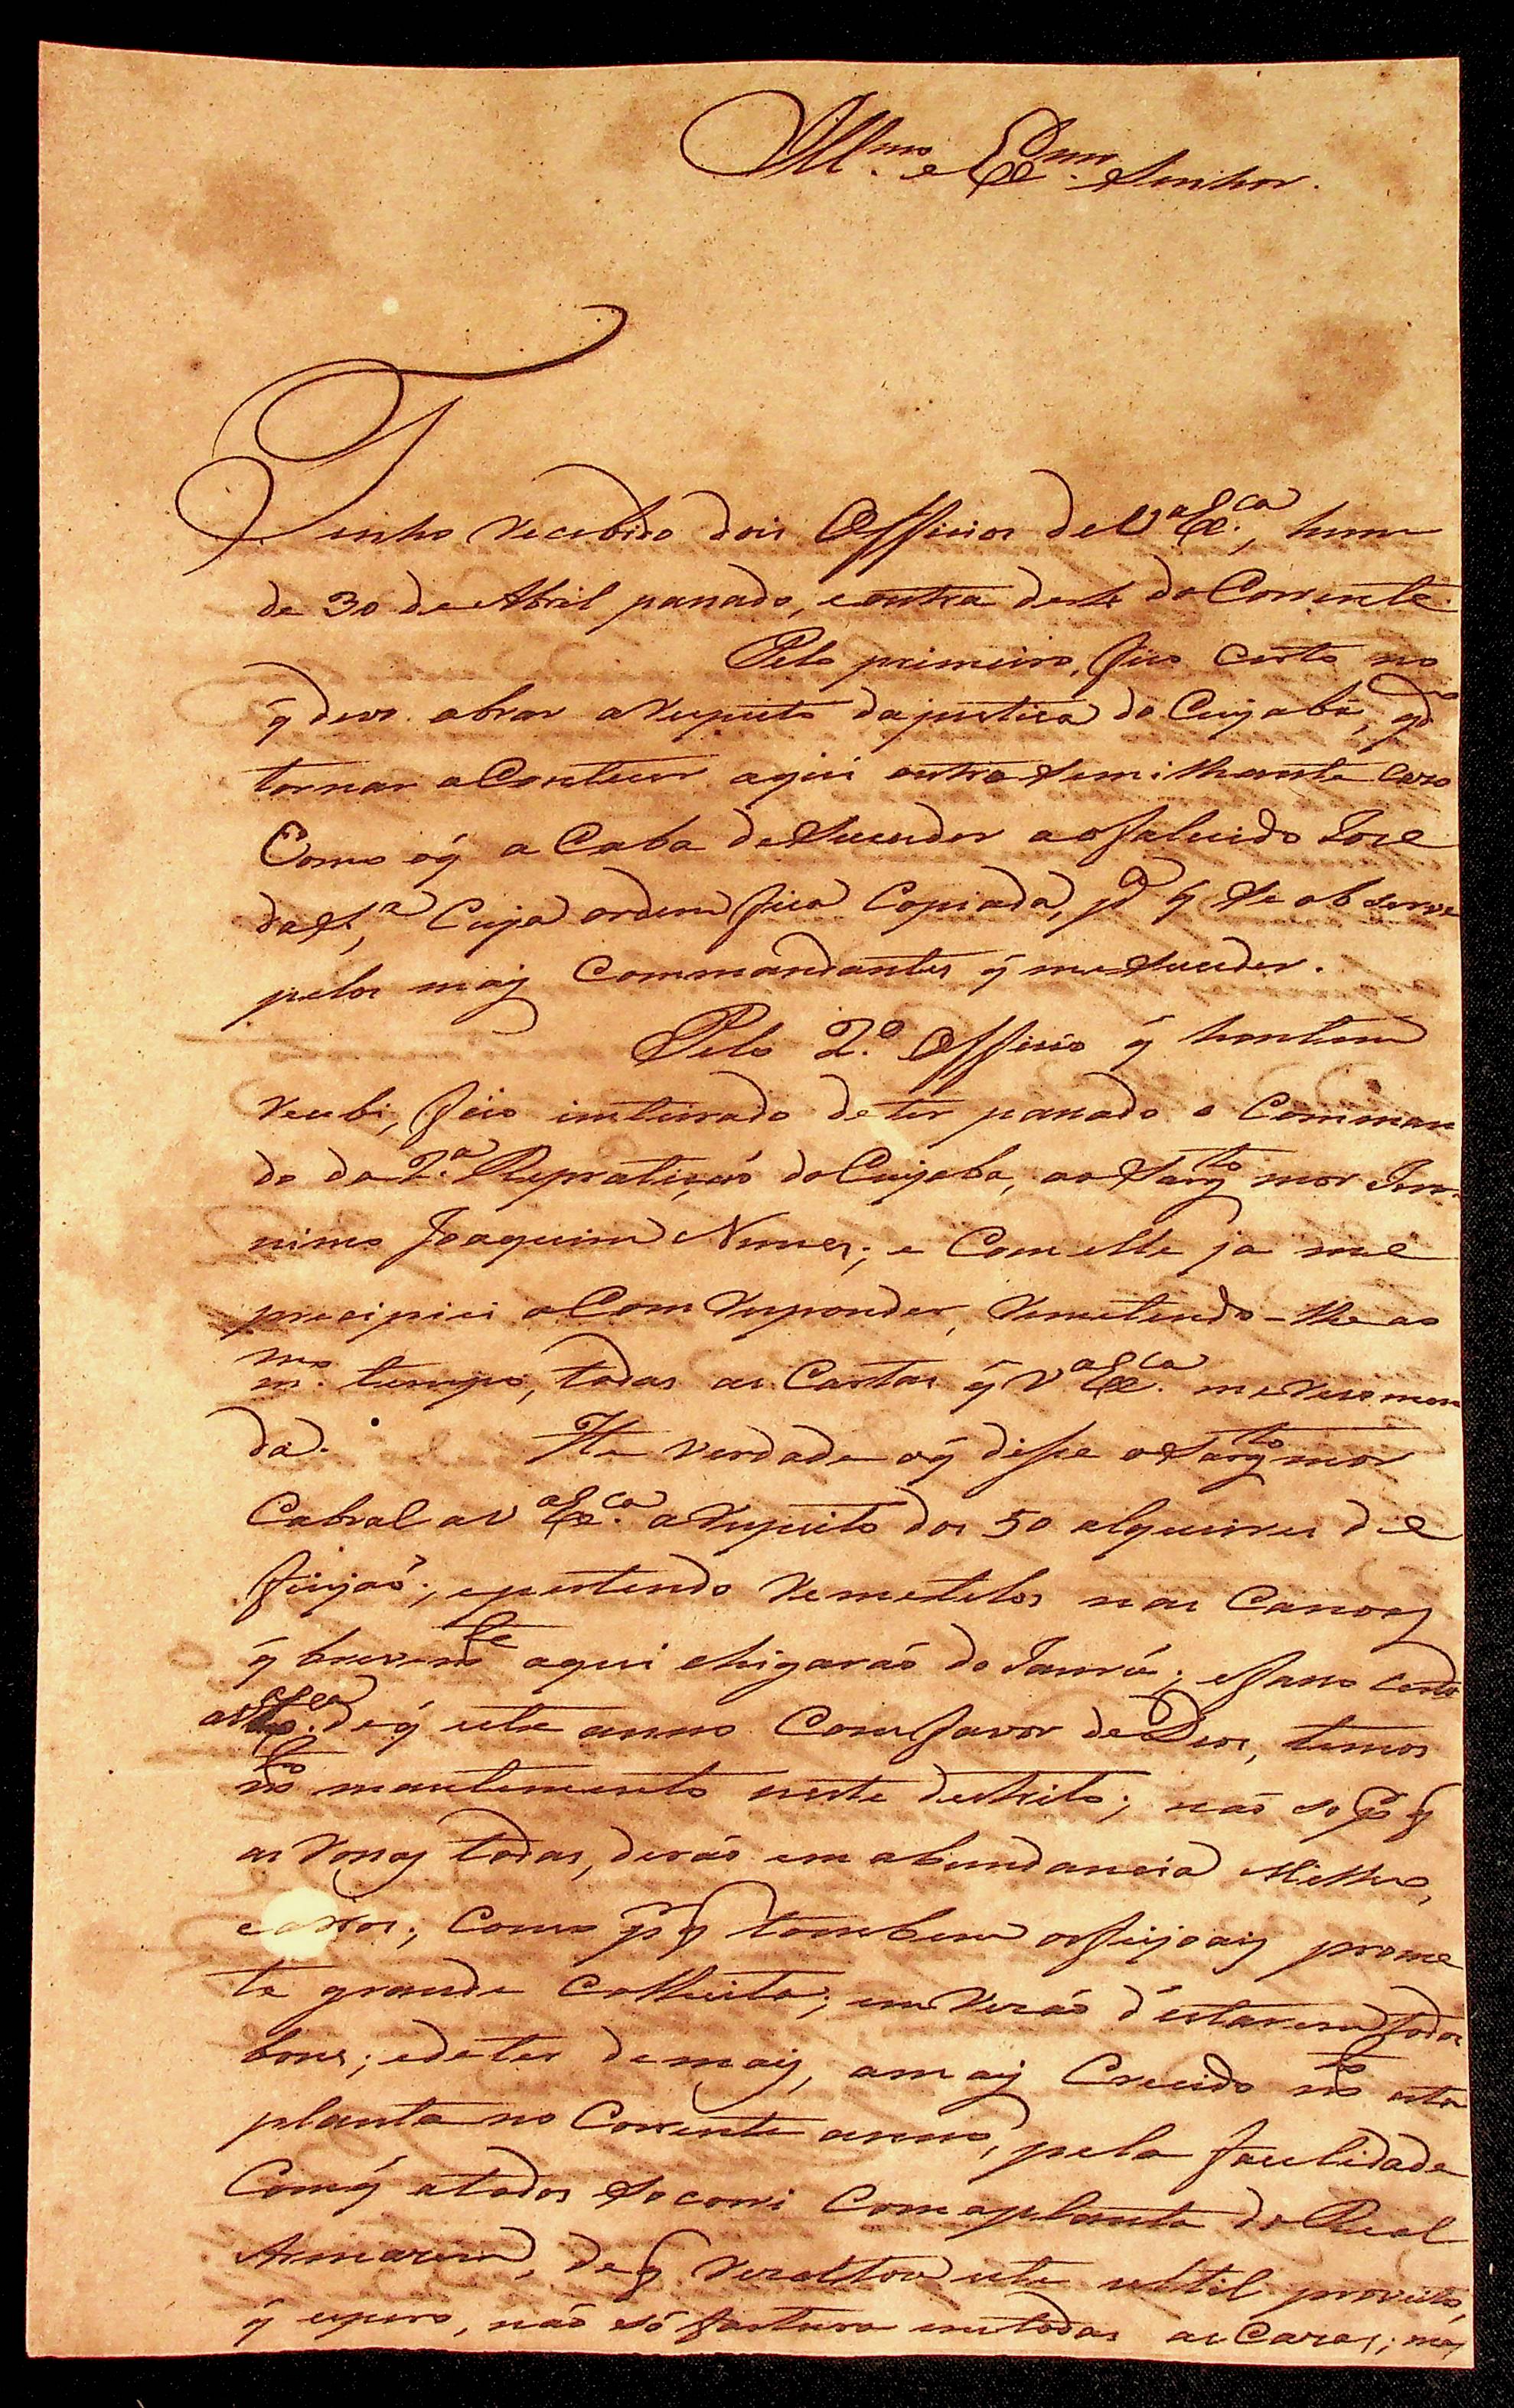 Ill.mo e Ex.mo Senhor.
Tenho recebido dois Officios de V.a Ex.ca, hum
de 30 de Abril passado, e outro deste do Corrente.
Pelo primeiro, fico certo no
q̃ devo obrar a respeito da justiça do Cuyabá, q.do
tornar a Conteser aqui outro Semilhante Cazo
Como o q̃ a Caba de Suceder ao falecido Joze
da S.a, Cuja ordem fica Copiada, p.a q̃ Se observe
pelos maiz Commandantes q̃ me Suceder.
Pelo 2.o Officio q̃ hontem
recebi, fico inteirado de ter passado o Comman
do da 2.a Repartiçaõ do Cuyaba, ao Sarg.to mor Jero
nimo Joaquim Nunes; e Com elle ja me
precipiei a Com responder, remetendo-lhe ao
m.mo tempo, todas as Cartas q̃ V.a Ex.ca me recomen
da. He verdade o q̃ disse o Sarg.to mor
Cabral a V.a Ex.ca a respeito dos 50 alqueires de
feijaõ; e pertendo remetelos nas Canoaz
q̃ brevem.te aqui chigaraõ do Jaurú; e faço certo
a V Ex.ca de q̃ este anno Com favor de Deos, temos
m.to mantimento neste destrito; naõ so p.r q̃
as rossaz todas, deraõ em abundancia Milho,
e arros; Como p.r q̃ tambem os feijoaiz prome
te grande Colheita; em rezaõ d'estarem todos
bons; e de ter de maiz, a maiz Crecido m.to esta
planta no Corrente anno, pela facelidade
Com q̃ a todos Socorri Com a planta do Real
Armazem, de q̃ rezoltou este uttil proveito,
q̃ espero, naõ só fartura em todas as Cazas; maz